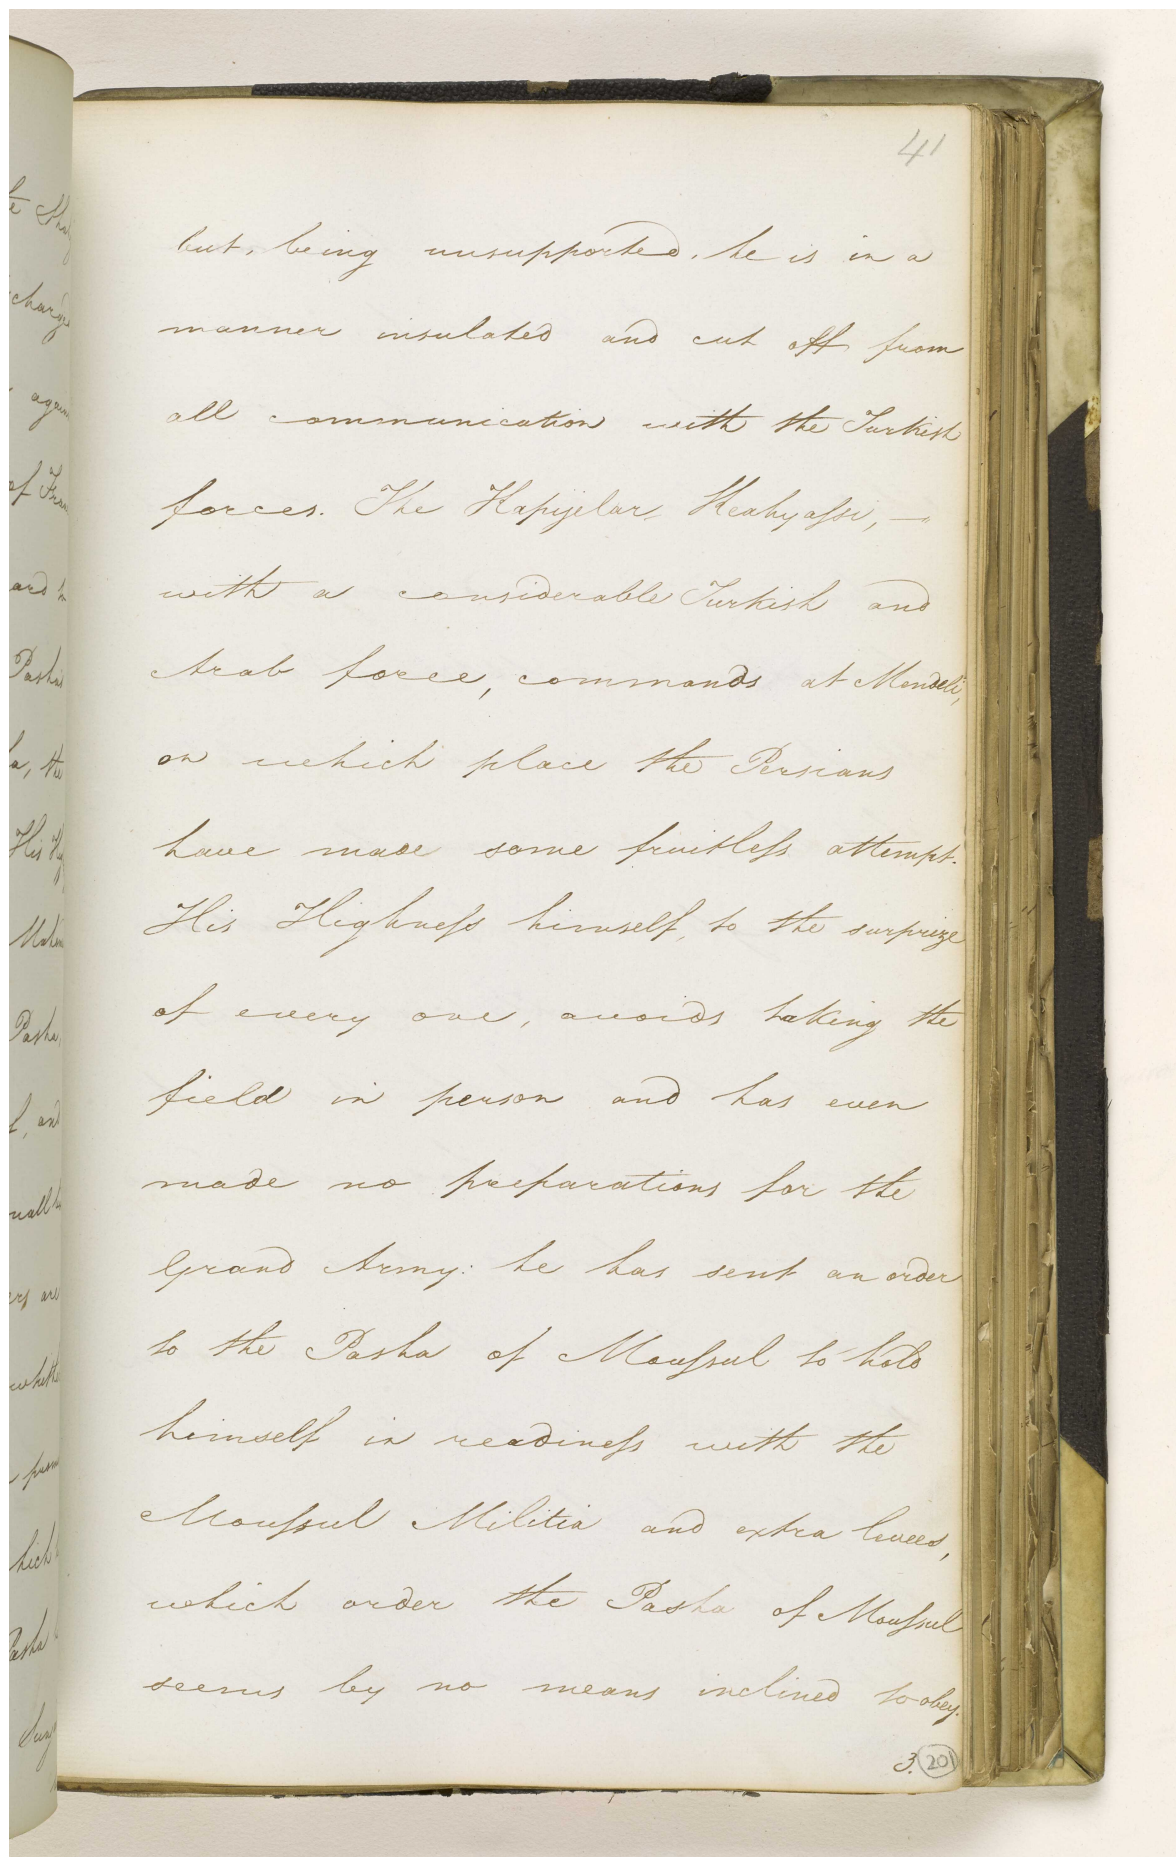 41
but, being unsupported, he is in a
manner insulated and cut off from
all communication with the Turkish
forces. The Kapijelar Keahyassi, —
with a considerable Turkish and
Arab force, commands at Mendeli,
on which place the Persians
have made some fruitless attempt.
His Highness himself, to the surprize
of every one, avoids taking the
field in person and has even
made no preparations for the
Grand Army: he has sent an order
to the Pasha of Moussul to hold
himself in readiness with the
Moussul Militia and extra levees,
which order the Pasha of Moussul
seems by no means inclined to obey.
3. 20